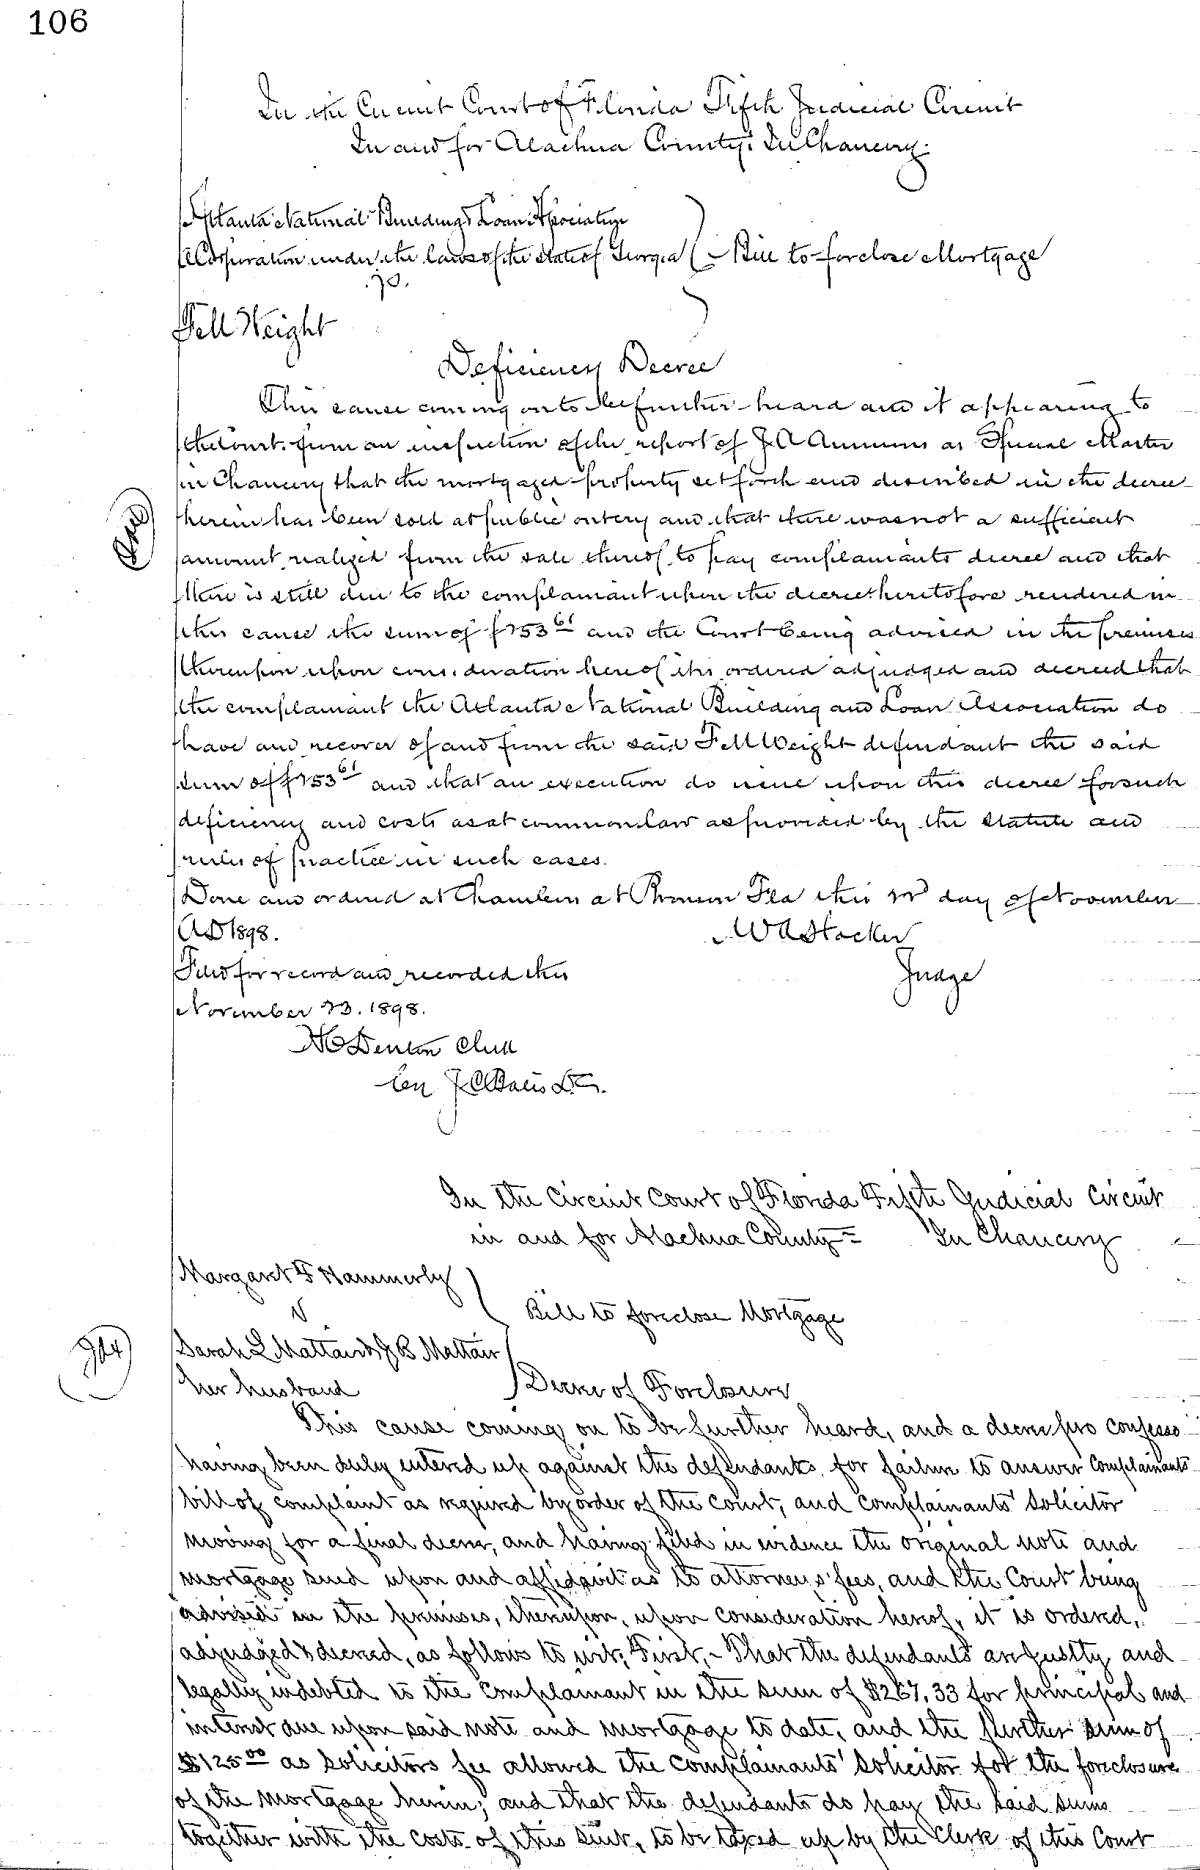 106
In the Circuit Court of Florida Fifth Judicial Circuit
In and for Alachua County. In Chancery.
Atlanta National Building & Loan Association
a Corporation under the laws of the State of Georgia - Bill to foreclose Mortgage
vs.
Fell Weight
Deficiency Decree
This cause coming on to be further heard and it appearing to
the Court from an inspection of the report of J A Ammons as Special Master
in Chancery that the mortgaged property set forth and described in the decree
herein has been sold at public outcry and that there was not a sufficient
amount realized from the sale thereof to pay complainants decree and that
there is still due to the complainant upon the decree heretofore rendered in
this cause the sum of and the Court being advised in the premises
thereupon upon consideration hereof it is ordered adjudged and decreed that
the complainant the Atlanta National Building and Loan Association do
have and recover of and from the said Fell Weight defendant the said
sum of and that an execution do issue upon this decree for such
deficiency and costs as at common law as provided by the statute and
rules of practice in such cases.
Done and ordered at Chambers at Bronson Fla this day of November
AD 1898. W A Hocker
Filed for record and recorded this Judge
November 23. 1898.
H C Denton Clerk
by J C Davis D.C.
In the Circuit Court of Florida Fifth Judicial Circuit
in and for Alachua County = In Chancery
Margaret F Hammerly
v Bill to foreclose Mortgage
Sarah L Mattair & J B Mattair
her husband Decree of Foreclosure
This cause coming on to be further heard, and a decree pro confesso
having been duly entered up against the defendants for failure to answer complainants
bill of complaint as required by order of the court, and complainants' solicitor
moving for a final decree, and having filed in evidence the original note and
mortgage sued upon and affidavit as to attorneys' fees, and the Court being
advised in the premises, thereupon, upon consideration hereof, it is ordered,
adjudged & decreed, as follows to wit; First, - That the defendants are justly and
legally indebted to the complainant in the sum of $267.33 for principal and
interest due upon said note and mortgage to date, and the further sum of
$125 00 as solicitors fee allowed the complainants' solicitor for the foreclosure
of the mortgage herein; and that the defendants do pay the said sums
together with the costs of this suit, to be taxed up by the Clerk of this Court